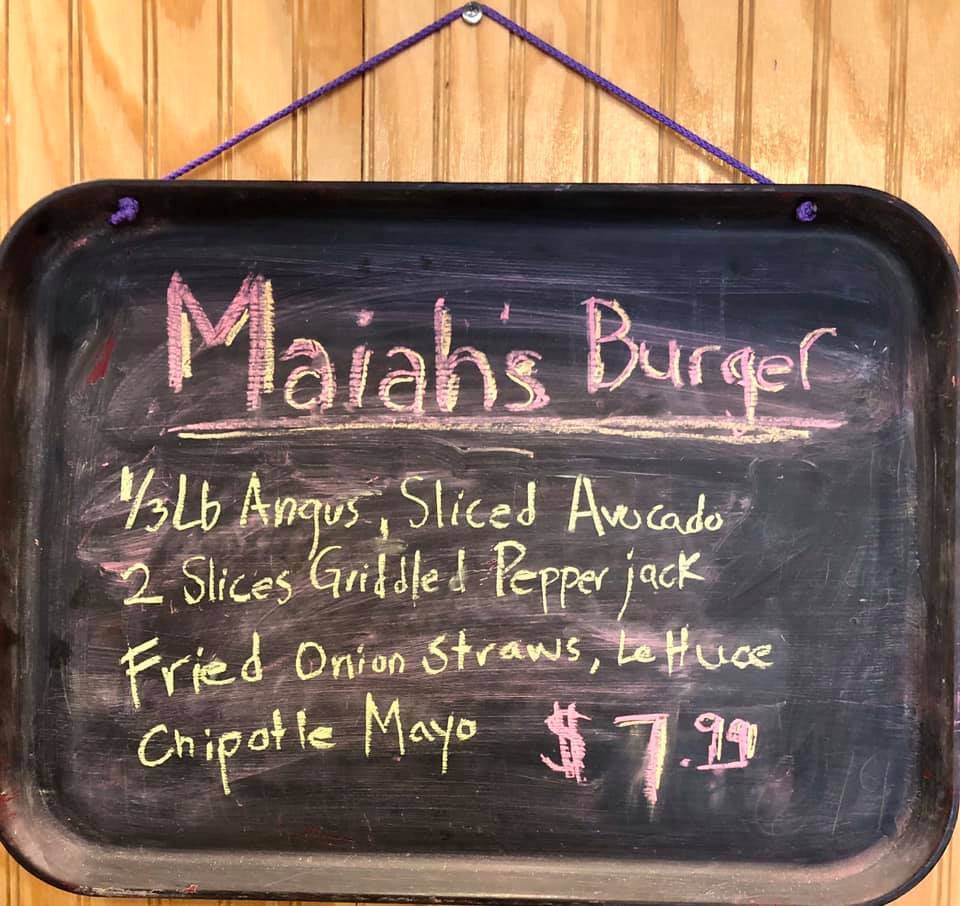 Maiah's Burger
1/3 Lb Angus, Sliced Avocado
2 Slices Griddled Pepper jack
Fried Onion Straws, Lettuce
Chipotle Mayo $7.99